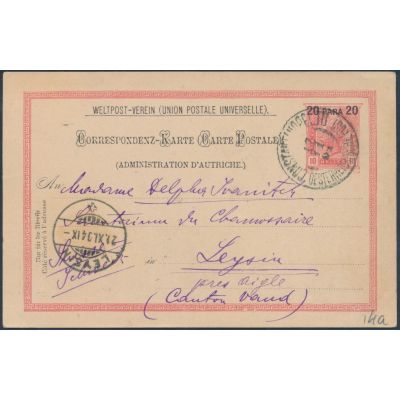 20 PARA 20
WELTPOST-VEREIN (UNION POSTALE UNIVERSELLE).
CORRESPONDENZ-KARTE (CARTE POSTALE)
(ADMINISTRATION D'AUTRICHE).
10 HELLER 10
An Madame Delpha
du Chamossaire
LEYSIN
21.XI.04.IX
in Leysin
près Aigle
(Canton Vaud)
Nur für die Adresse
Côté réservé à l'adresse
14a